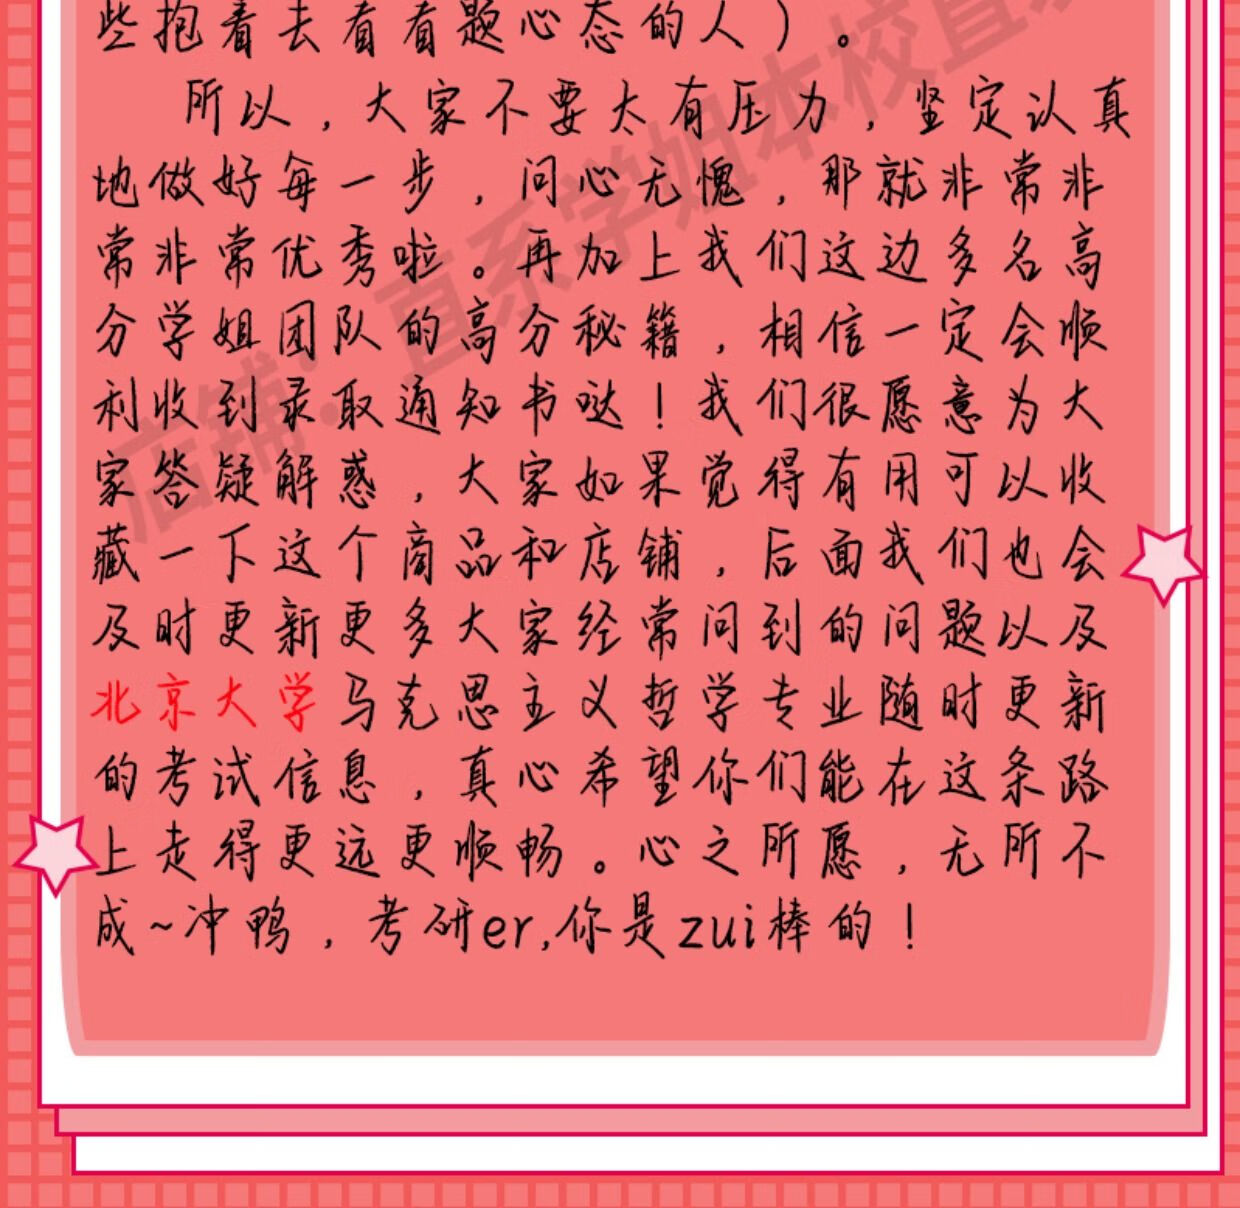 些抱着去看看题心态的人）。
所以，大家不要太有压力，坚定认真
地做好每一步，问心无愧，那就非常非
常非常优秀啦。再加上我们这边多名高
分学姐团队的高分秘籍，相信一定会顺
利收到录取通知书哒！我们很愿意为大
家答疑解惑，大家如果觉得有用可以收
藏一下这个商品和店铺，后面我们也会
及时更新更多大家经常问到的问题以及
北京大学马克思主义哲学专业随时更新
的考试信息，真心希望你们能在这条路
上走得更远更顺畅。心之所愿，无所不
成~冲鸭，考研er,你是zui棒的！
店铺：直系学姐本校直系